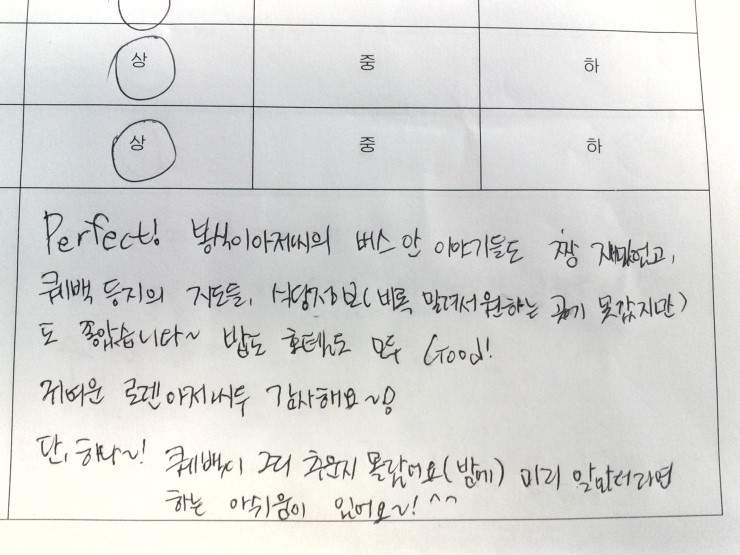 상 중 하
상 중 하
Perfect! 봉식이아저씨의 버스 안 이야기들도 짱 재미있었고,
퀘백 등지의 지도들, 식당정보(비록 말려서 원하는 곳에 못갔지만)
도 좋았습니다~ 밥도 호텔도 모두 Good!
귀여운 로렌아저씨두 감사해요~
단, 하나~! 퀘백이 그리 추운지 몰랐어요(밤에) 미리 알았더라면
하는 아쉬움이 있어요~! ^^